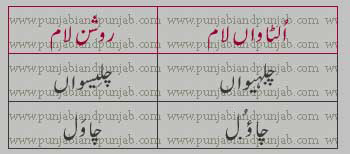 اُلٹاواں لام روشن لام
چلہیواں چلیسواں
چاؤُل چاوَل
www.punjabiandpunjab.com